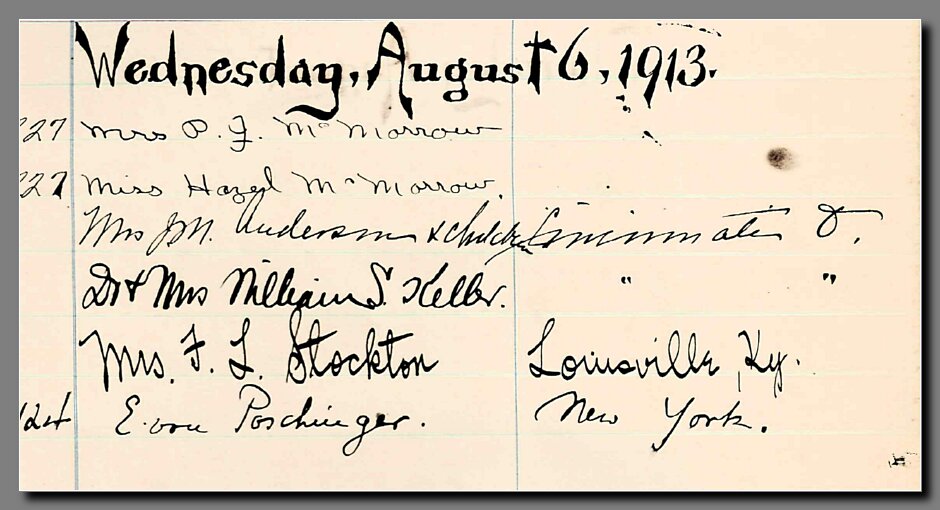 Wednesday, August 6, 1913.
227 Mrs P. J. McMorrow
227 Miss Hazel McMorrow.
Mrs J M. Anderson & children Cincinnati O.
Dr & Mrs William S. Keller. " "
Mrs. F. L. Stockton Louisville, Ky.
124 E. von Poschinger. New York.